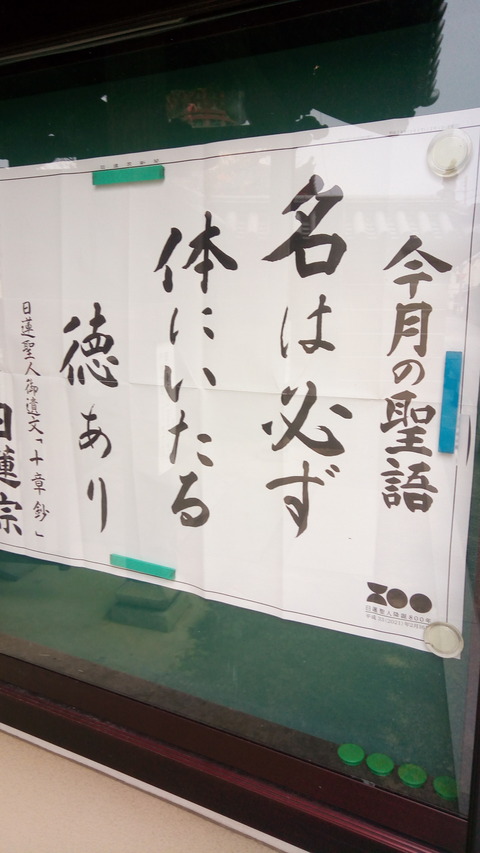 今月の聖語
名は必ず
体にいたる
徳あり
日蓮聖人御遺文「十章鈔」
日蓮宗
日蓮聖人降誕800年